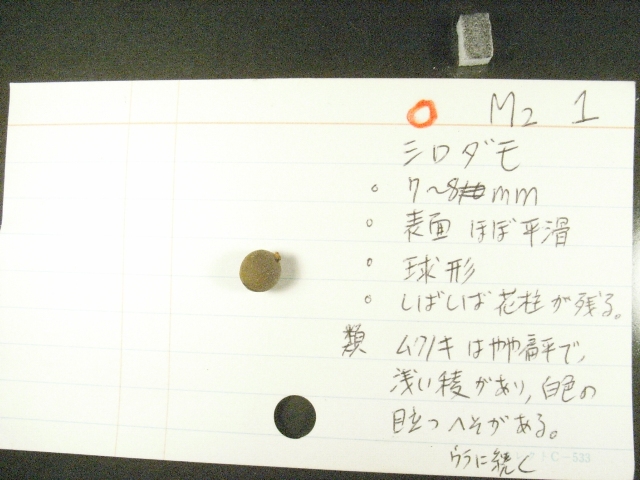 ○ M2 1
シロダモ
○ 7〜8mm
○ 表面 ほぼ平滑
○ 球形
○ しばしば花柱が残る。
類 ムクノキはやや扁平で、
浅い稜があり、白色の
目立つへそがある。
ウラに続く
C-533